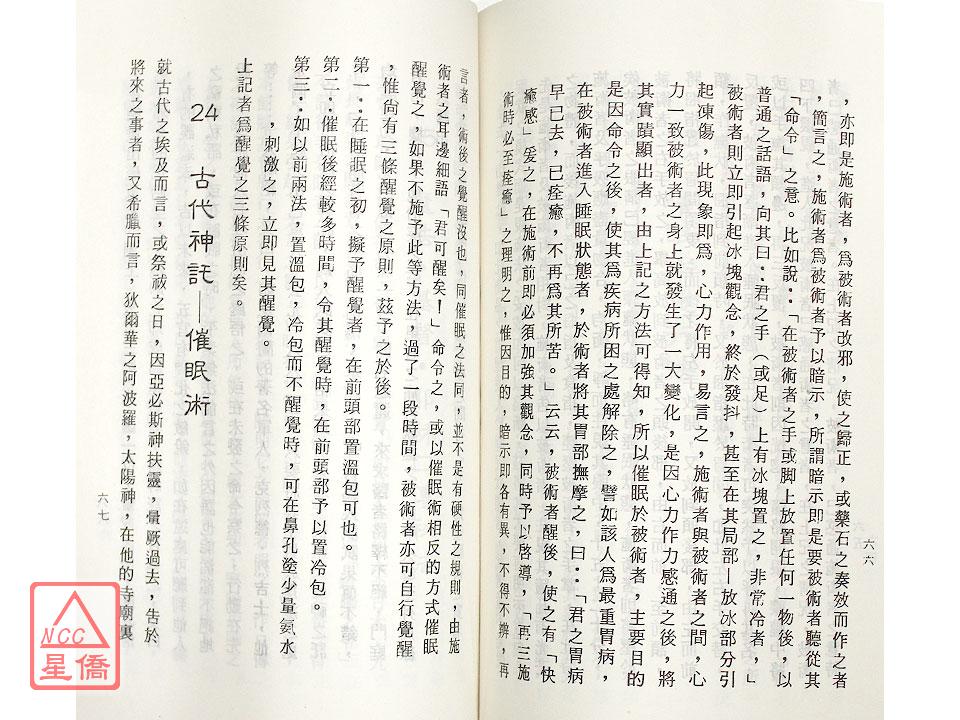 ，亦即是施術者，爲被術者改邪，使之歸正，或藥石之奏效而作之者
，簡言之，施術者爲被術者予以暗示，所謂暗示即是要被術者聽從其
「命令」之意。比如說：「在被術者之手或脚上放置任何一物後，以
普通之話語，向其曰：君之手（或足）上有冰塊置之，非常冷者，」
被術者則立即引起冰塊觀念，終於發抖，甚至在其局部—放冰部分引
起凍傷，此現象即爲，心力作用，易言之，施術者與被術者之間，心
力一致被術者之身上就發生了一大變化，是因心力作力感通之後，將
其實蹟顯出者，由上記之方法可得知，所以催眠於被術者，主要目的
是因命令之後，使其爲疾病所困之處解除之，譬如該人爲最重胃病，
在被術者進入睡眠狀態者，於術者將其胃部撫摩之，曰：「君之胃病
早已去，已痊癒，不再爲其所苦。」云云，被術者醒後，使之有「快
癒感」爰之，在施術前即必須加強其觀念，同時予以啓導，「再三施
術時必至痊癒」之理明之，惟因目的，暗示即各有異，不得不辨，再
六六
言者，術後之覺醒沒也，同催眠之法同，並不是有硬性之規則，由施
術者之耳邊細語「君可醒矣！」命令之，或以催眠術相反的方式催眠
醒覺之，如果不施予此等方法，過了一段時間，被術者亦可自行覺醒
，惟尙有三條醒覺之原則，茲予之於後。
第一：在睡眠之初，擬予醒覺者，在前頭部置溫包可也。
第二：催眠後經較多時間，令其醒覺時，在前頭部予以置冷包。
第三：如以前兩法，置溫包，冷包而不醒覺時，可在鼻孔塗少量氨水
，刺激之，立即見其醒覺。
上記者爲醒覺之三條原則矣。
24 古代神託—催眠術
就古代之埃及而言，或祭祓之日，因亞必斯神扶靈，暈厥過去，告於
將來之事者，又希臘而言，狄爾華之阿波羅，太陽神，在他的寺廟裏
六七
NCC
星僑